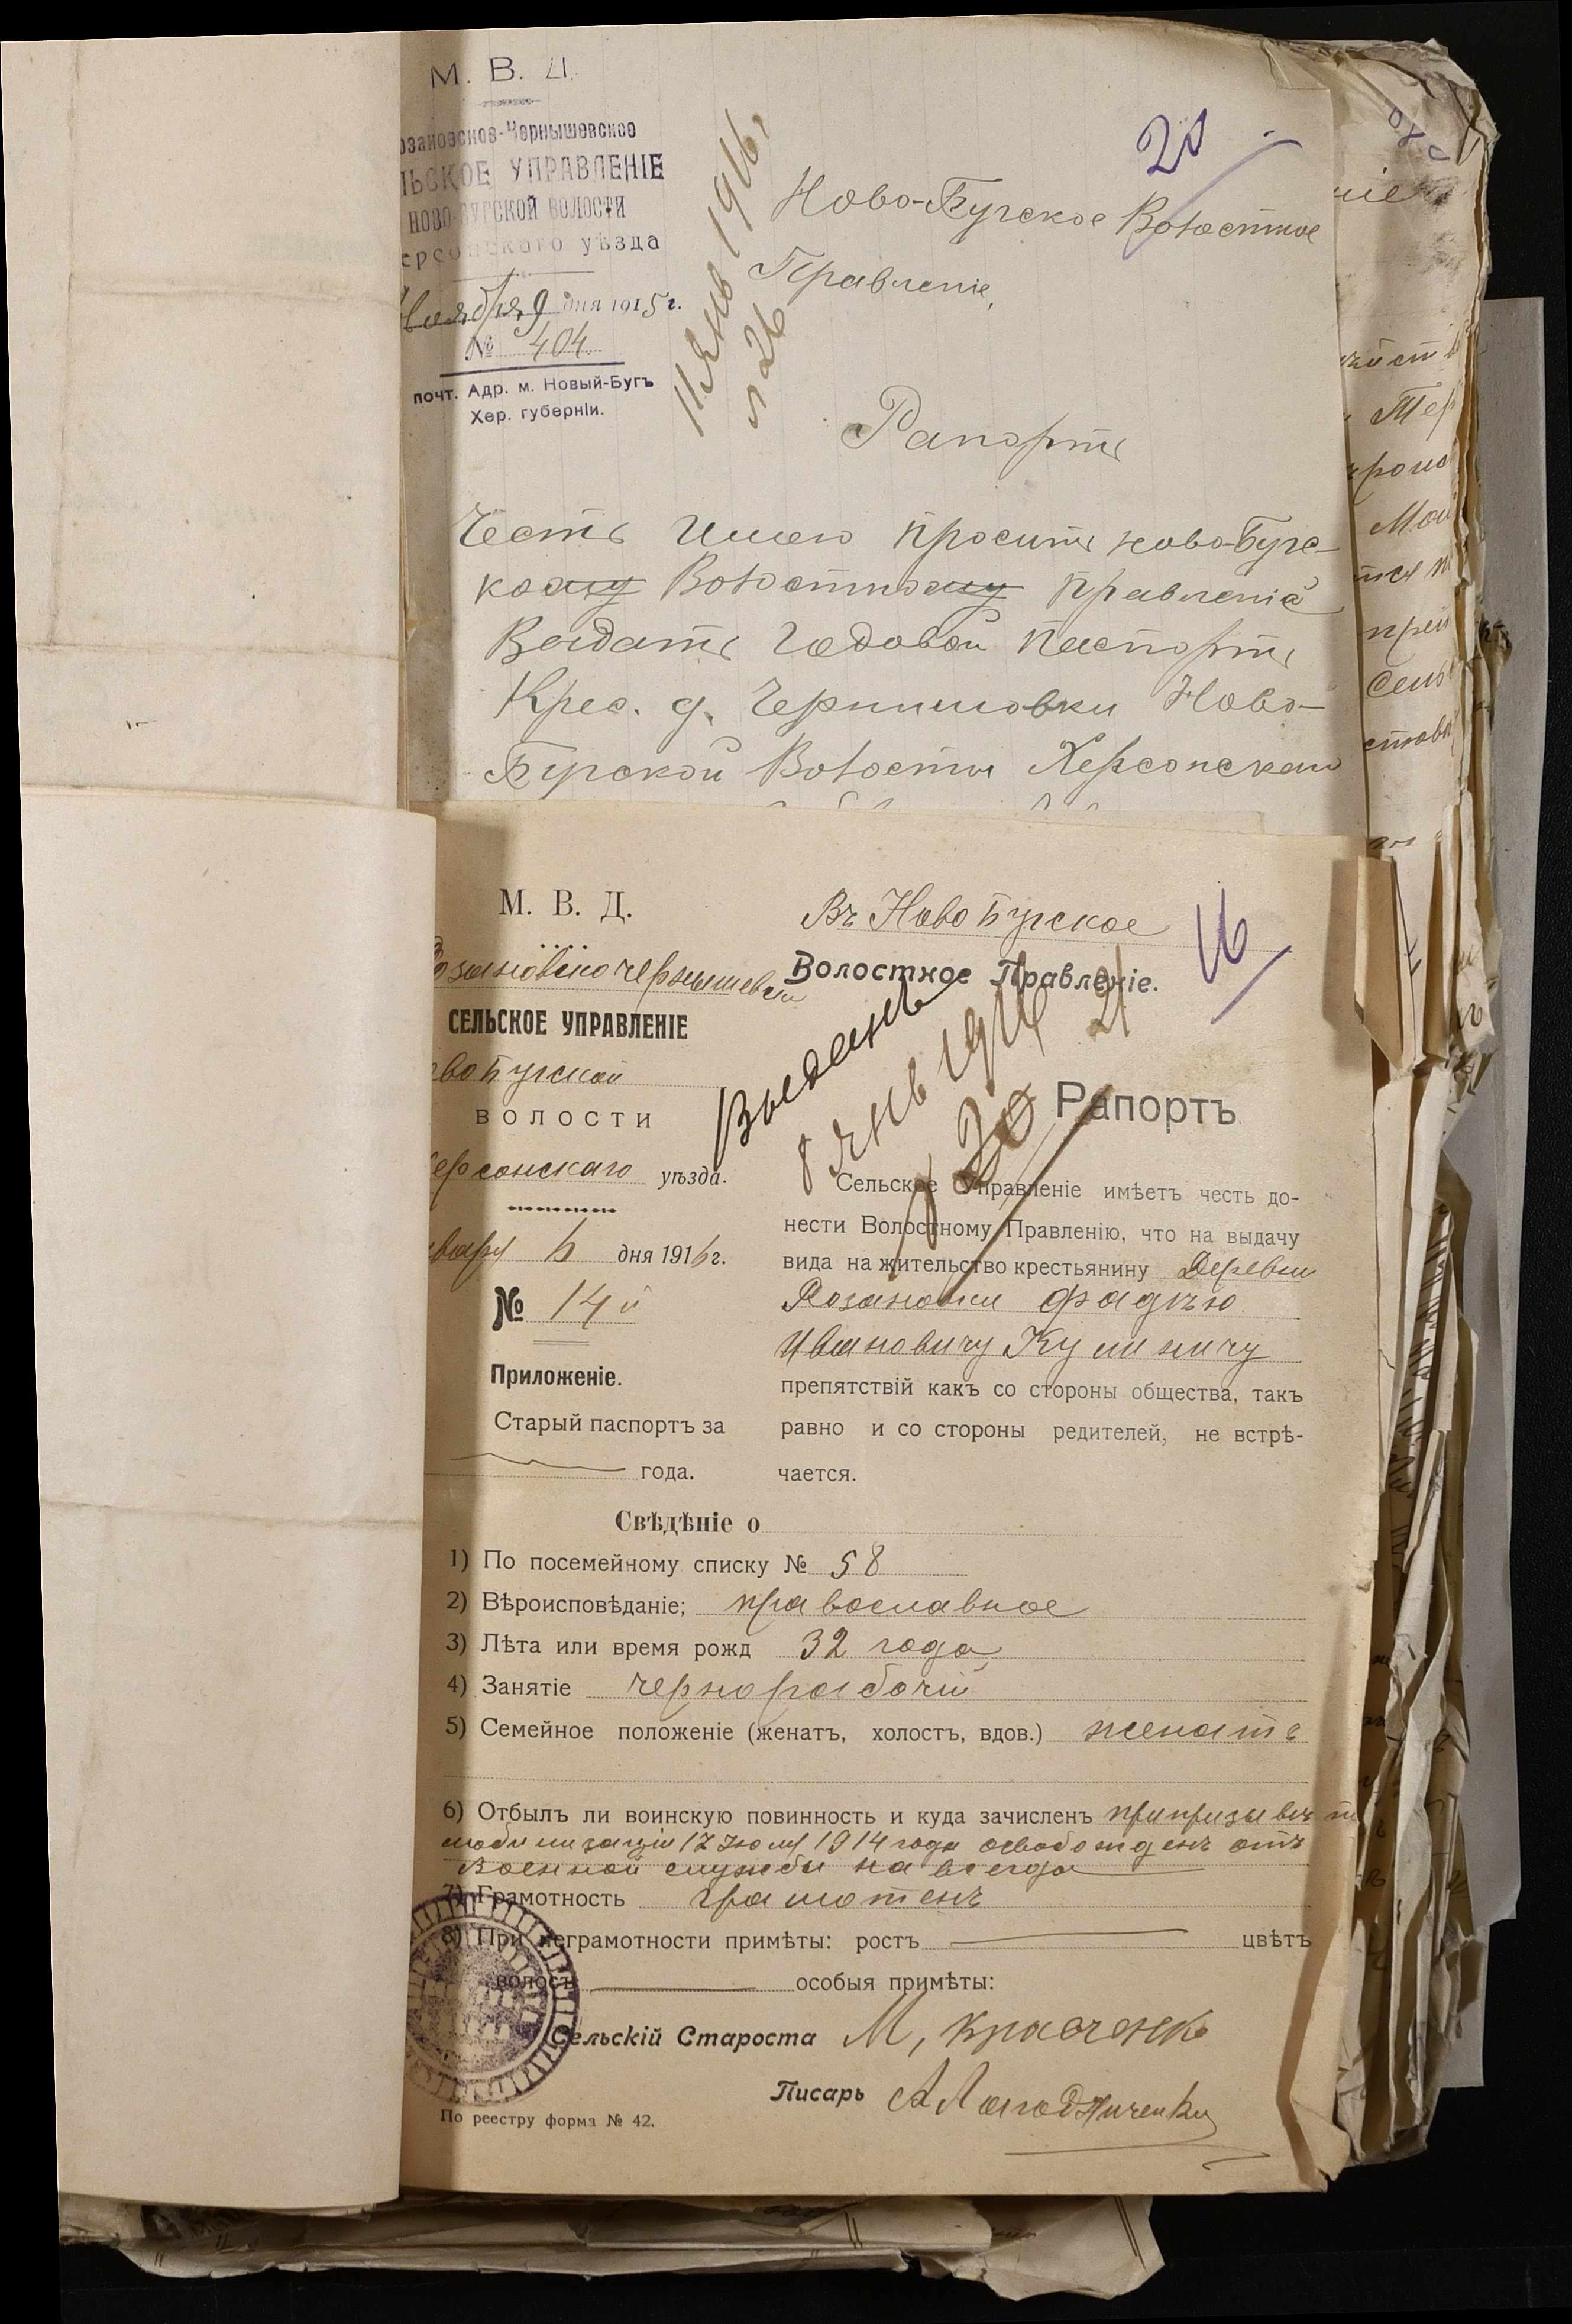 М. В. Д.
озановское-Чернышовское
ЛЬСКОЕ УПРАВЛЕНІЕ
НОВО-БУГСКОЙ ВОЛОСТИ
ерсонскаго уѣзда
Ноября 9 дня 1915 г.
№ 404
почт. Адр. м. Новый-Бугъ
Хер. губерніи.
11 ЯНВ 1916
20
Ново-Бугское Волостное
Правленіе,
Рапортъ
Честь Имею просить Ново-Бугс-
кому Волостному Правленія
Выдать Годовой паспортъ
Крес. д. Чернишовки Ново-
Бугской Волости Херсонскаго
М. В. Д.
Розановско чернышевск
СЕЛЬСКОЕ УПРАВЛЕНІЕ
ово Бугской
ВОЛОСТИ
ерсонскаго уѣзда.
нваря 6 дня 1916 г.
№ 14
Приложеніе.
Старый паспортъ за
года.
Въ Ново Бугское
16
Волостное Правленіе.
Выданъ
8 ЯНВ 1916
20
Рапортъ
Сельское Управленіе имѣетъ честь до-
нести Волостному Правленію, что на выдачу
вида на жительство крестьянину Деревни
Розановки Фадѣю
Ивановичу Кулиничу
препятствій какъ со стороны общества, такъ
равно и со стороны редителей, не встрѣ-
чается.
Свѣдѣніе о
1) По посемейному списку № 58
2) Вѣроисповѣданіе; православное
3) Лѣта или время рожд 32 года
4) Занятіе чернорабочій
5) Семейное положеніе (женатъ, холостъ, вдов.) женатъ
6) Отбылъ ли воинскую повинность и куда зачисленъ припризывѣ по
мобилизаціи 17 июля 1914 года освобожденъ отъ
Военной службы на всегда
7) Грамотность грамотенъ
8) При неграмотности примѣты: ростъ цвѣтъ
волосъ особыя примѣты:
Сельскій Староста М, Красченко
Писарь
По реестру форма № 42.